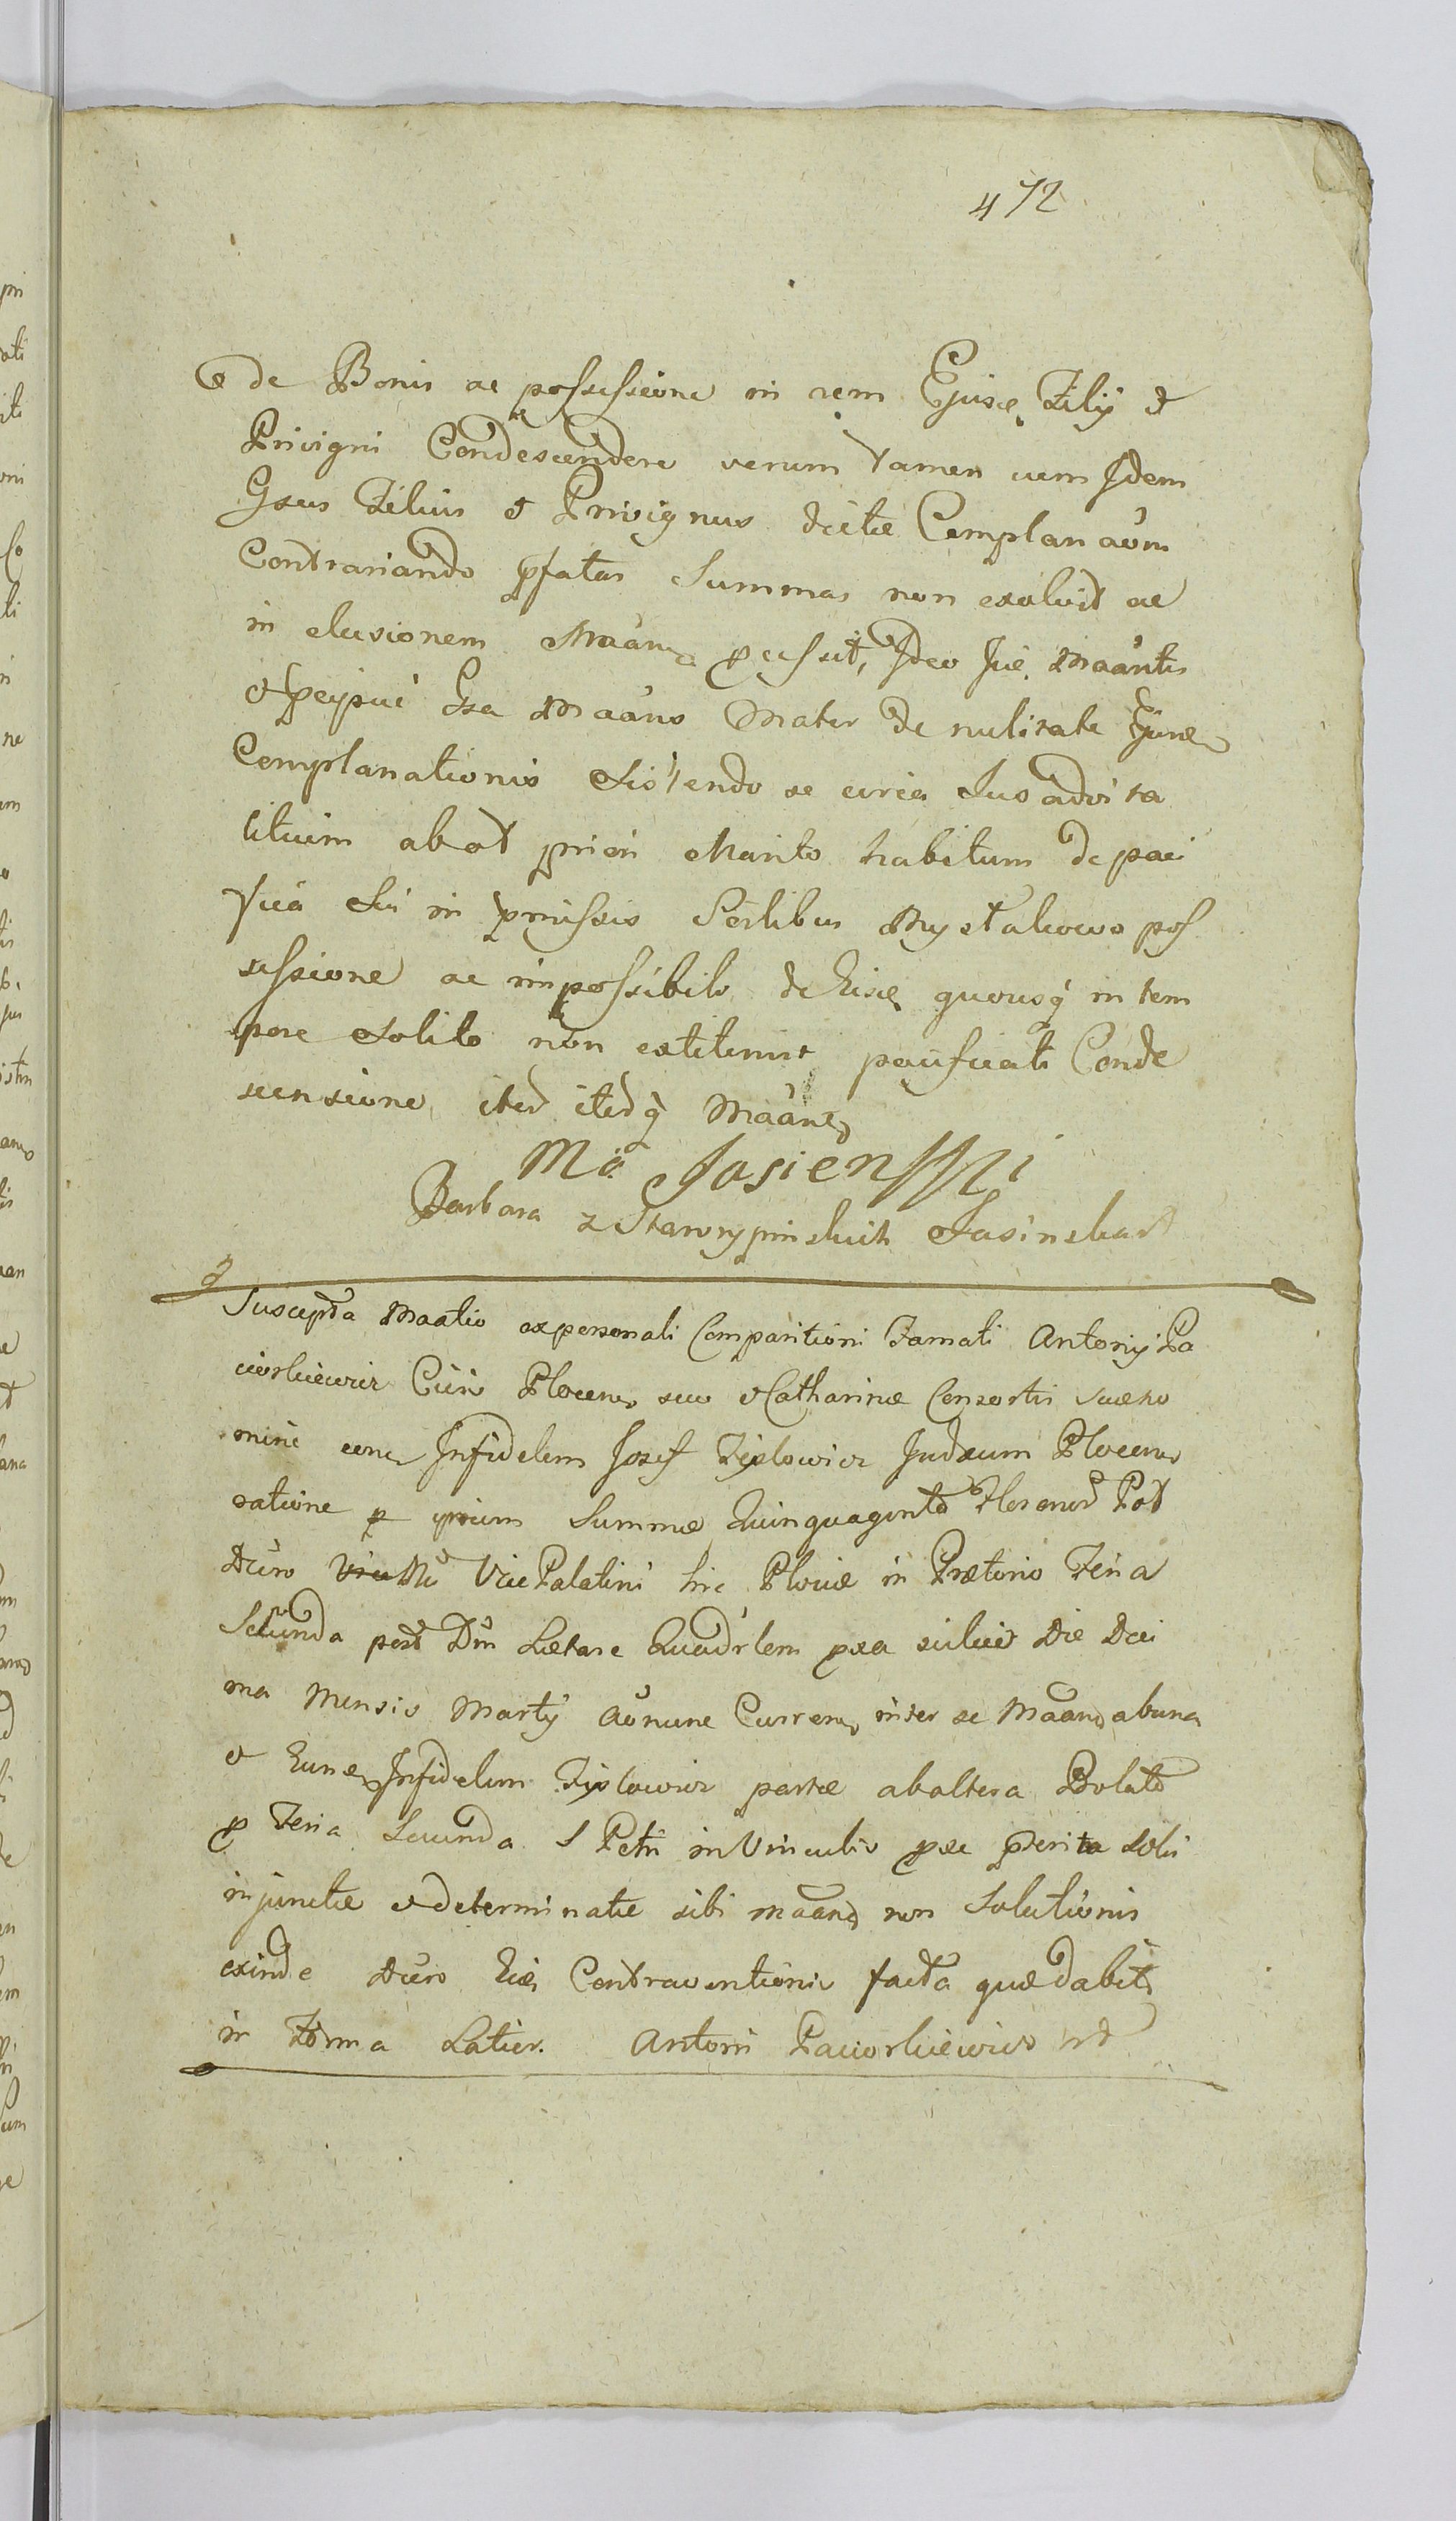 472
de Bonis ac possessione in rem Ejusd Filij et
Privigni Condescendere verum tamen cum Idem
Gsus Filius et Privignus dictæ Complanaōni
Contrariando pfatas Summas non exolvit ac
in elusionem Maān gessit, Ideo Jie Maāntes
et pcipuè Gsa Maāns Mater de nulitate Ejusd
Complanationis Sistendo se circa Jus advita
litium ab ol priori Marito habitum de paci
fica Sui in pmissis Sortibus Mystkowo pos
sessione ac impossibili de Eisd quousq in tem
pore Solito non extiterint pacificati Conde
scensione, iterd iterdq Maāne
Mā Jasienski
Barbara z Starorypinskich Jasinska
Suscepta Maatio ex personali Comparitioni Famati Antonij Pa
ciorkiewicz Civis Plocen suo et Catharinæ Consortis suæ no
mine cona Infidelem Josef Fislowicz Judæum Plocen
ratione Summæ Quinquaginta Florenor Pol
Dēcro Mci Vice Palatini hic Plociæ in Prætorio Feria
Secunda post Dm Lætare Quadrlem pxa scilicet Die Deci
ma Mensis Martij Aō nunc Curren inter se Maan ab una
et Eund Infidelem Fislowicz partæ ab altera Dolato
p Feria Secunda S Petri in Vinculis pxe pterita Solvi
injunctæ et determinatæ sibi maan non Solutionis
exinde Dēcro Eid Contraventionis facta quæ dabit
in Forma Latior. Antoni Paciorkiewicz